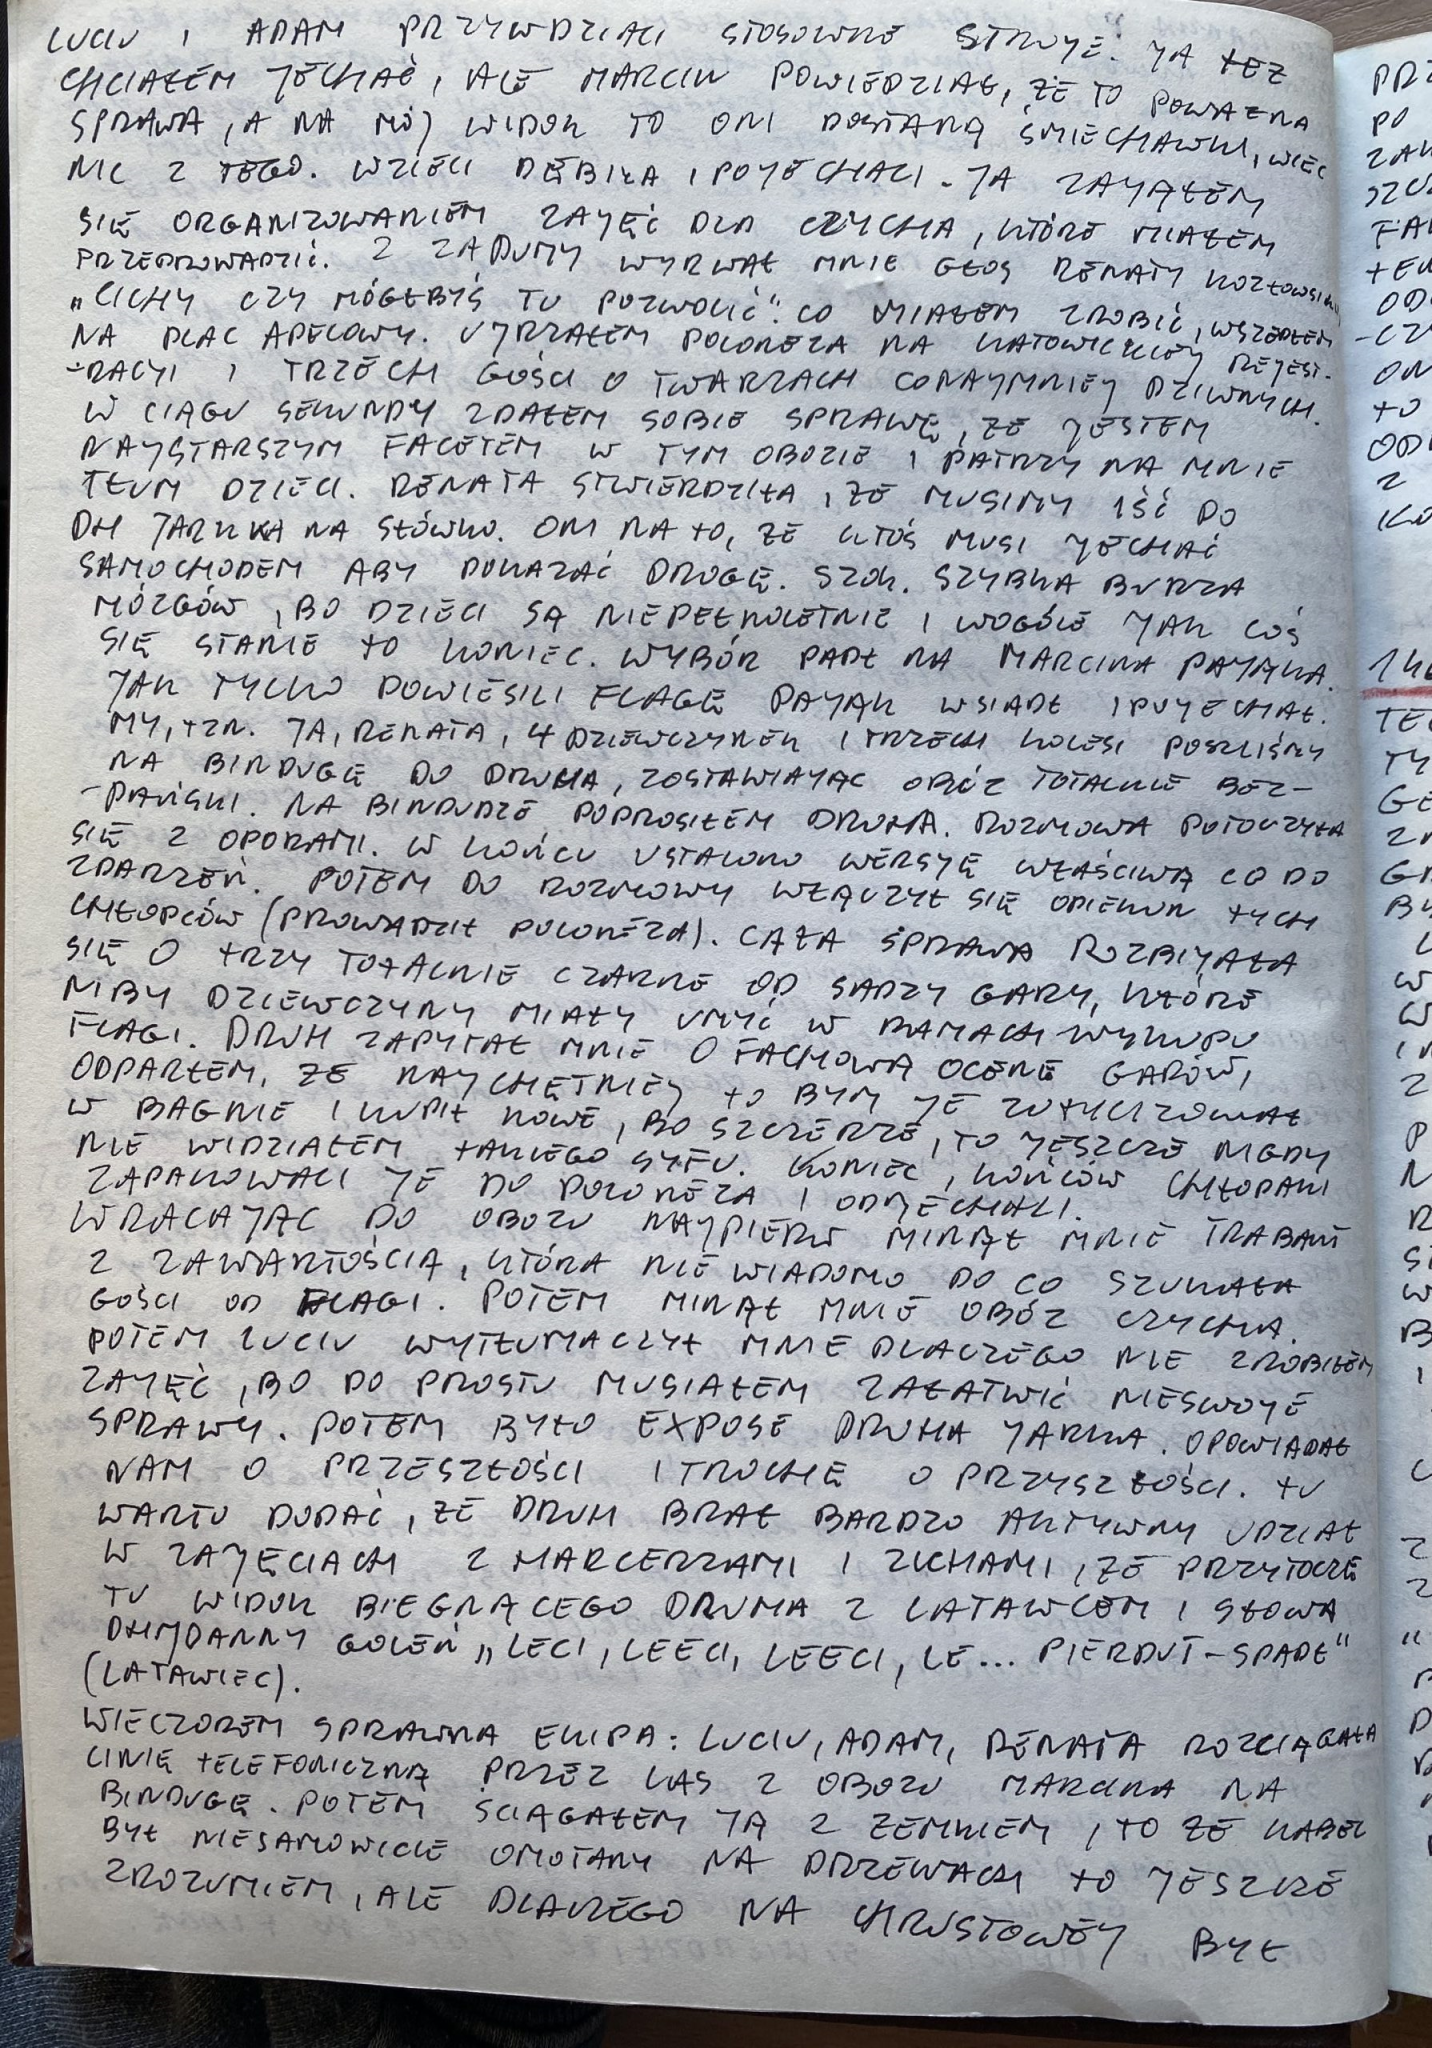 LUCIU I ADAM PRZYWDZIALI STOSOWNE STROJE. JA TEŻ
CHCIAŁEM JECHAĆ, ALE MARCIN POWIEDZIAŁ, ŻE TO POWAŻNA
SPRAWA, A NA MÓJ WIDOK TO ONI DOSTANĄ ŚMIECHAWKI, WIĘC
NIC Z TEGO. WZIELI DĘBIŁA I POJECHALI. JA ZAJĄŁEM
SIĘ ORGANIZOWANIEM ZAJĘĆ DLA CZYCHA, KTÓRE MIAŁEM
PRZEPROWADZIĆ. Z ZADUMY WYRWAŁ MNIE GŁOS RENATY KOZŁOWSKIEJ
„CICHY CZY MÓGŁBYŚ TU POZWOLIĆ". CO MIAŁEM ZROBIĆ, WSZEDŁEM
NA PLAC APELOWY. UJRZAŁEM POLONEZA NA KATOWICKIEJ REJEST-
-RACJI I TRZECH GOŚCI O TWARZACH CONAJMNIEJ DZIWNYCH.
W CIĄGU SEKUNDY ZDAŁEM SOBIE SPRAWĘ, ŻE JESTEM
NAJSTARSZYM FACETEM W TYM OBOZIE I PATRZY NA MNIE
TŁUM DZIECI. RENATA STWIERDZIŁA, ŻE MUSIMY IŚĆ DO
DH JARKA NA SŁÓWKO. ONI NA TO, ŻE KTOŚ MUSI JECHAĆ
SAMOCHODEM ABY POKAZAĆ DROGĘ. SZOK. SZYBKA BURZA
MÓZGÓW, BO DZIECI SĄ NIEPEŁNOLETNIE I WOGÓLE JAK COŚ
SIĘ STANIE TO KONIEC. WYBÓR PADŁ NA MARCINA PAJĄKA.
JAK TYLKO POWIESILI FLAGĘ PAJĄK WSIADŁ I POJECHAŁ.
MY, TZN. JA, RENATA, 4 DZIEWCZYNEK I TRZECH KOLESI POSZLIŚMY
NA BINDUGĘ DO DRUHA, ZOSTAWIAJĄC OBÓZ TOTALNIE BEZ-
-PAŃSKI. NA BINDUDZE POPROSIŁEM DRUHA. ROZMOWA POTOCZYŁA
SIĘ Z OPORAMI. W KOŃCU USTALONO WERSJĘ WŁAŚCIWĄ CO DO
ZDARZEŃ. POTEM DO ROZMOWY WŁĄCZYŁ SIĘ OPIEKUN TYCH
CHŁOPCÓW (PROWADZIŁ POLONEZA). CAŁA SPRAWA ROZBIJAŁA
SIĘ O TRZY TOTALNIE CZARNE OD SADZY GARY, KTÓRE
NIBY DZIEWCZYNY MIAŁY UMYĆ W RAMACH WYKUPU
FLAGI. DRUH ZAPYTAŁ MNIE O FACHOWĄ OCENĘ GARÓW,
ODPARŁEM, ŻE NAJCHĘTNIEJ TO BYM JE ZUTYLIZOWAŁ
W BAGNIE I KUPIŁ NOWE, BO SZCZERZE, TO JESZCZE NIGDY
NIE WIDZIAŁEM TAKIEGO SYFU. KONIEC, KOŃCÓW CHŁOPAKI
ZAPAKOWALI JE DO POLONEZA I ODJECHALI.
WRACAJĄC DO OBOZU NAJPIERW MINĄŁ MNIE TRABANT
Z ZAWARTOŚCIĄ, KTÓRA NIE WIADOMO PO CO SZUKAŁA
GOŚCI OD FLAGI. POTEM MINĄŁ MNIE OBÓZ CZYCHA.
POTEM LUCIU WYTŁUMACZYŁ MNIE DLACZEGO NIE ZROBIŁEM
ZAJĘĆ, BO PO PROSTU MUSIAŁEM ZAŁATWIĆ NIESWOJE
SPRAWY. POTEM BYŁO EXPOSE DRUHA JARKA. OPOWIADAŁ
NAM O PRZESZŁOŚCI I TROCHĘ O PRZYSZŁOŚCI. TU
WARTO DODAĆ, ŻE DRUH BRAŁ BARDZO AKTYWNY UDZIAŁ
W ZAJĘCIACH Z HARCERZAMI I ZUCHAMI, ŻE PRZYTOCZĘ
TU WIDOK BIEGNĄCEGO DRUHA Z LATAWCEM I SŁOWA
DH JOANNY GOLEŃ „LECI, LEECI, LEECI, LE... PIERDUT-SPADŁ"
(LATAWIEC).
WIECZOREM SPRAWNA EKIPA: LUCIU, ADAM, RENATA ROZCIĄGAŁA
LINIĘ TELEFONICZNĄ PRZEZ LAS Z OBOZU MARCINA NA
BINDUGĘ. POTEM ŚCIĄGAŁEM JĄ Z ZEMKIEM, TO ŻE KABEL
BYŁ NIESAMOWICIE OMOTANY NA DRZEWACH TO JESZCZE
ZROZUMIEM, ALE DLACZEGO NA CHRUSTOWEJ BYŁ